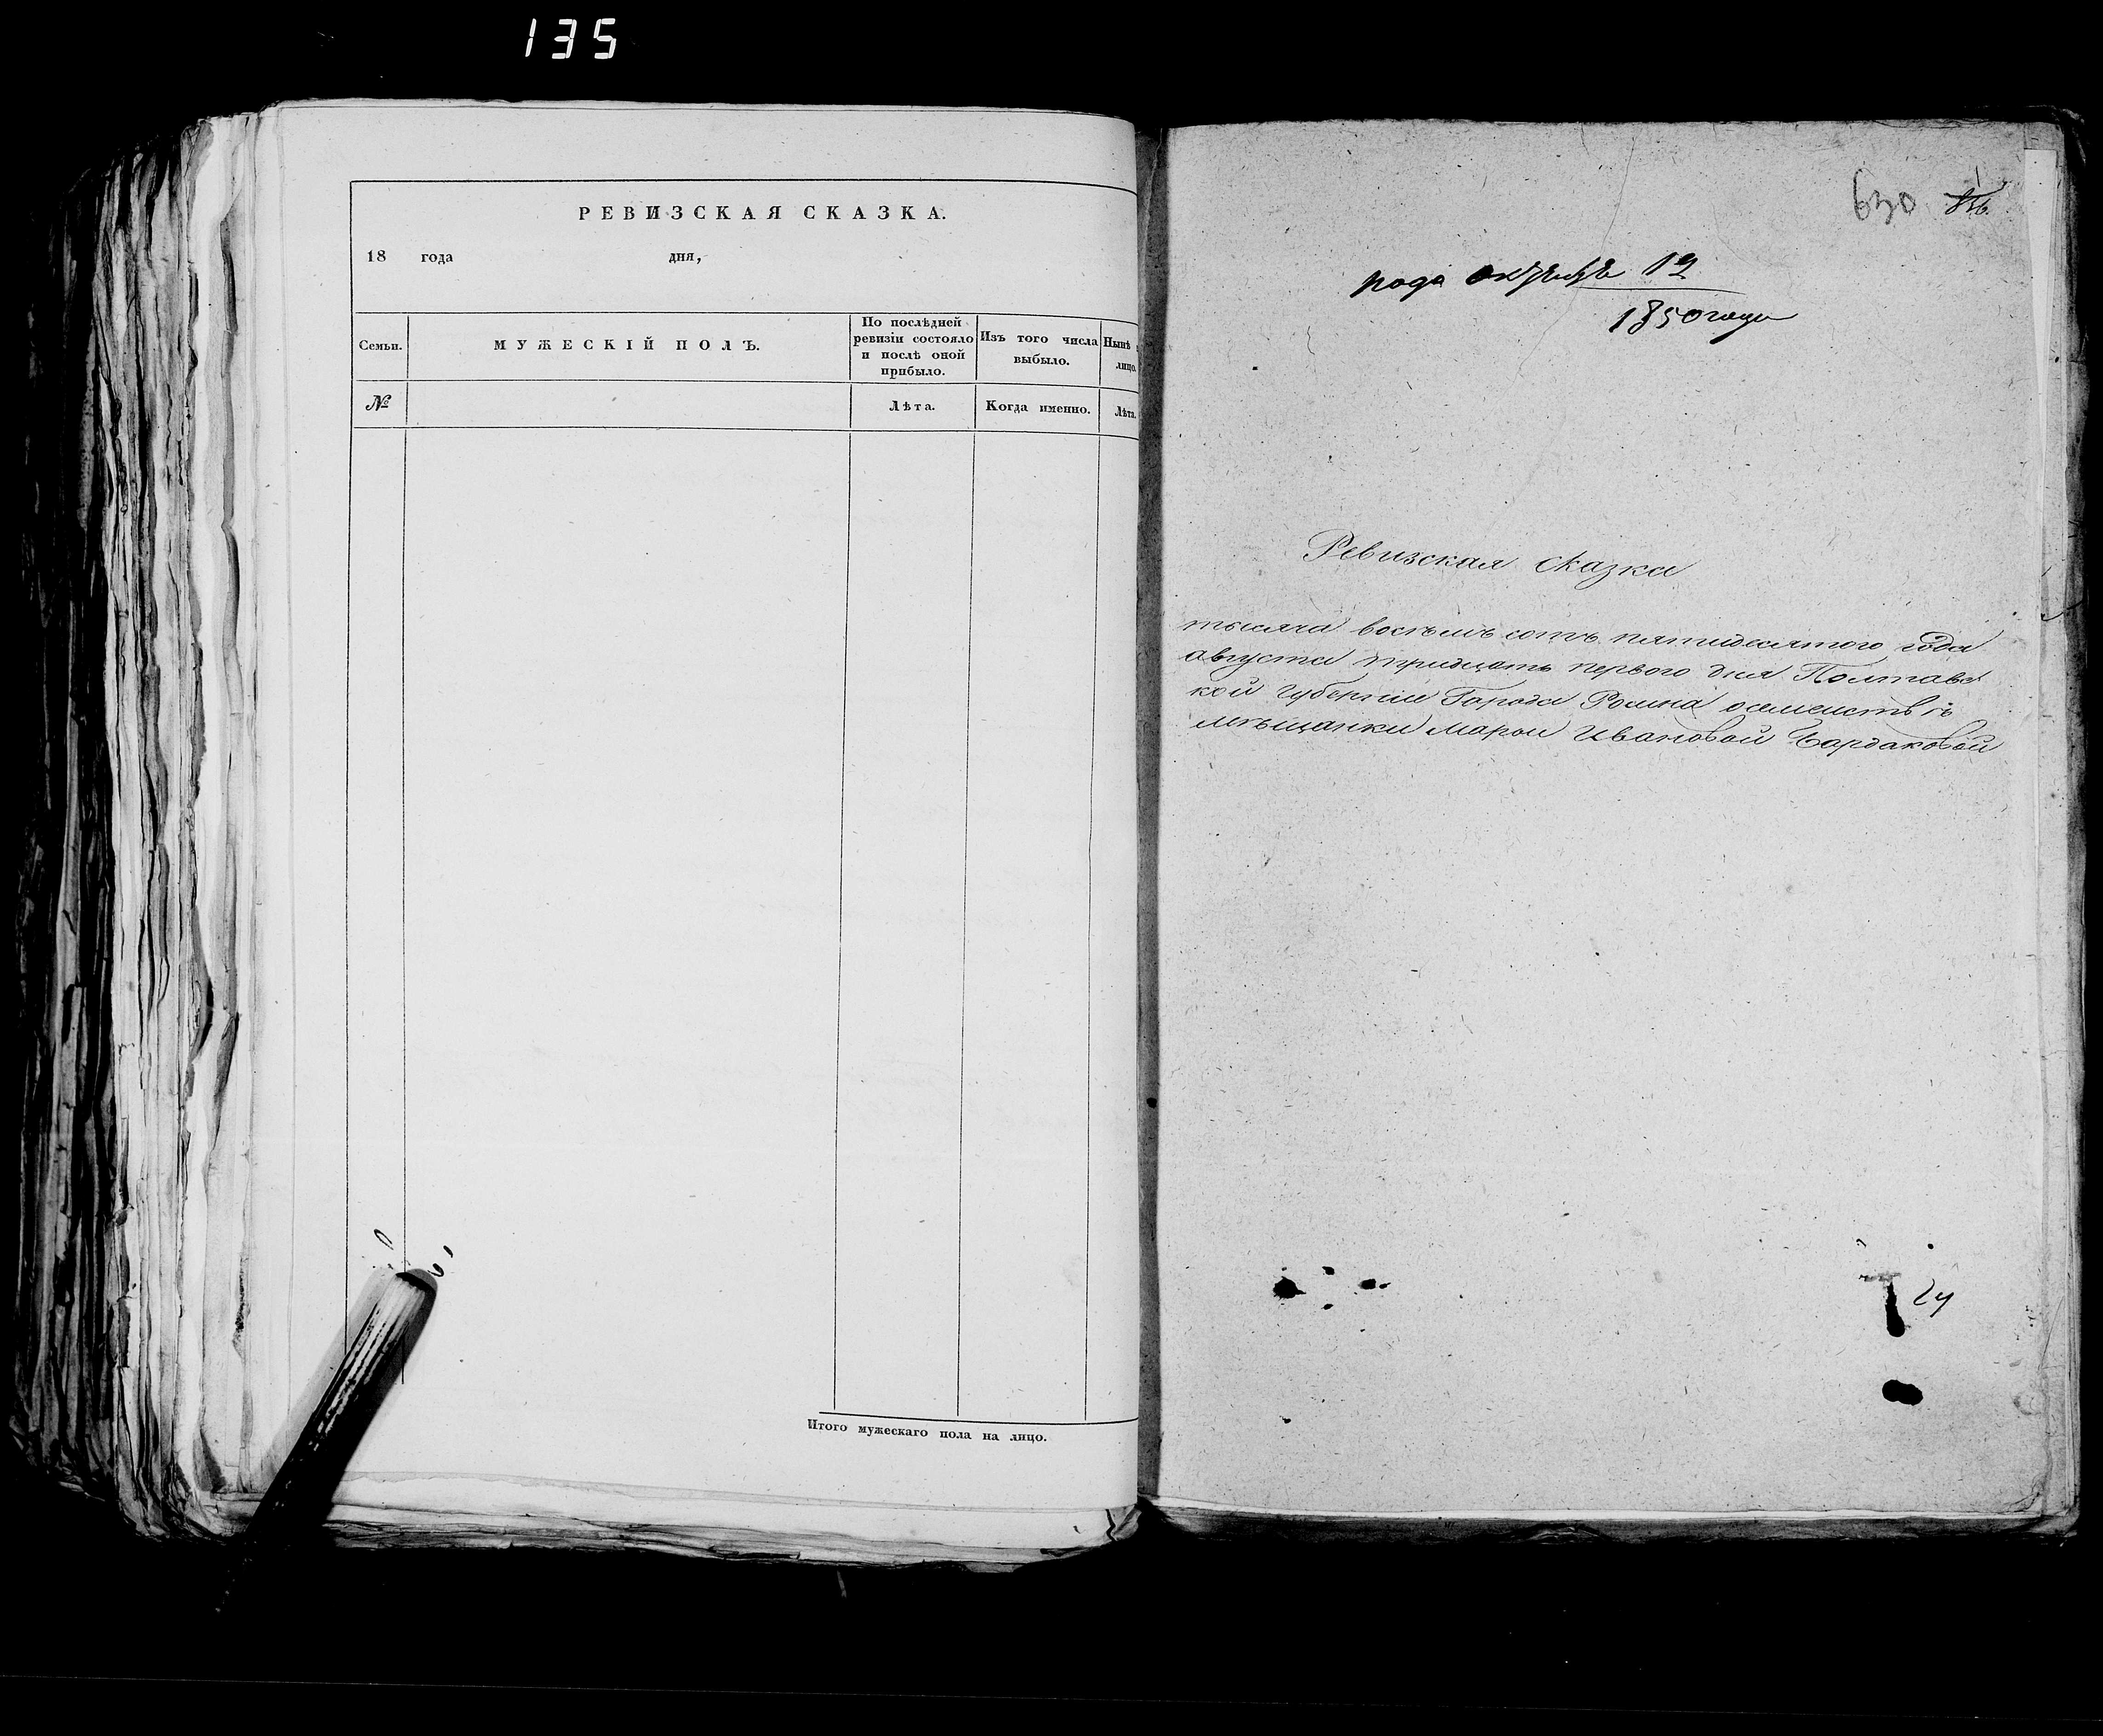 135
РЕВИЗСКАЯ СКАЗКА.
18 года дня,
Семьи.
МУЖЕСКІЙ ПОЛЪ.
По послѣдней ревизіи состояло и послѣ оной прибыло.
Изъ того числа выбыло.
Нынѣ лицо.
№
Лѣта.
Когда именно.
Лѣта.
Итого мужескаго пола на лицо.
630
12
1850 года
Ревизская сказка
тысяча восъемъ сотъ пятидесятого года
августа тридцать первого дня Полтавс
кой Губерніи Города Ромна осемействѣ
мѣщанки Марѳи Ивановой Бардаковой
24